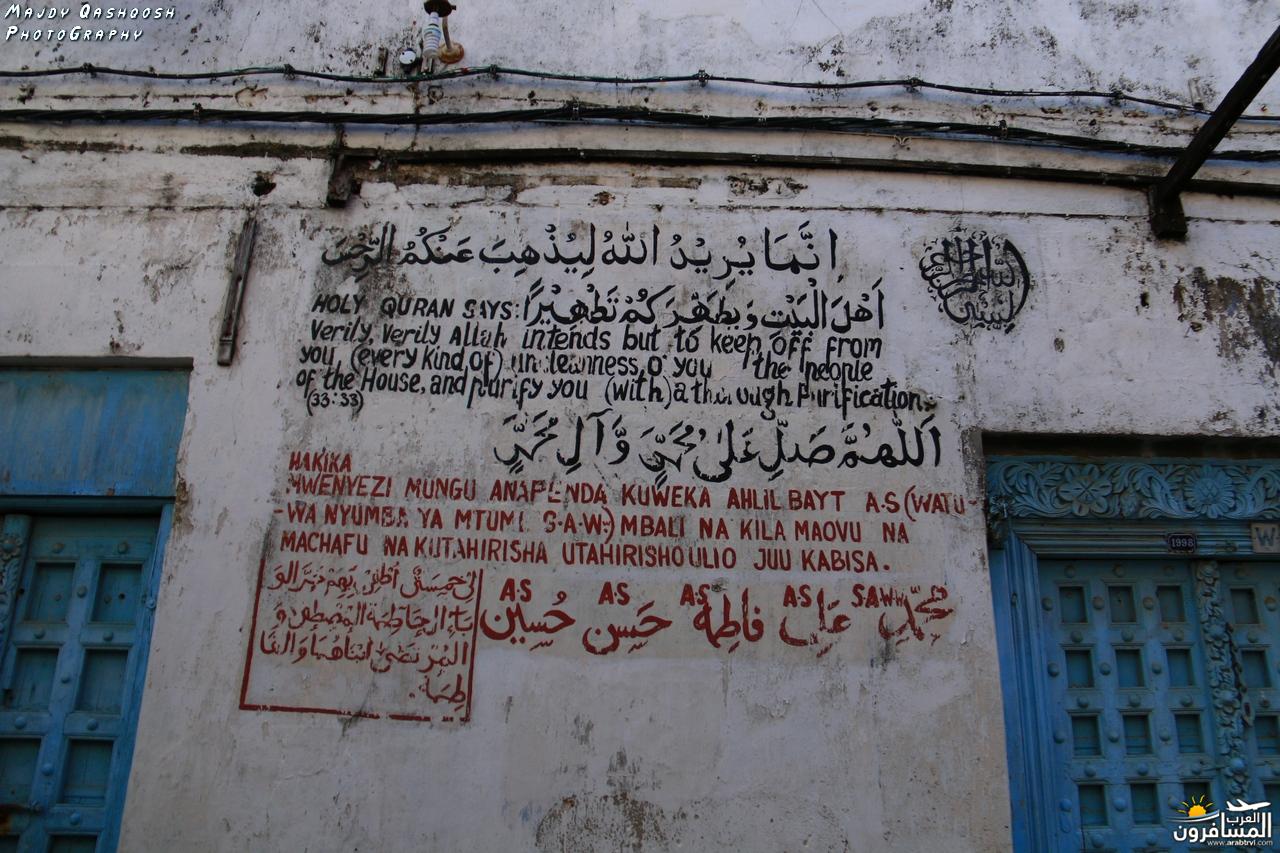 MAJDY QASHOOSH
PHOTOGRAPHY
انَّمَا يُرِيْدُ اللّٰهُ لِيُذْهِبَ عَنْكُمُ الرِّجْسَ
اَهْلَ الْبَيْتِ وَيُطَهِّرَكُمْ تَطْهِيْرًا
HOLY QURAN SAYS:
Verily, verily Allah intends but to keep off from
you, (every kind of) uncleanness, O you the people
of the House, and purify you (with) a thorough Purification.
(33:33)
اَللّٰهُمَّ صَلِّ عَلىٰ مُحَمَّدٍ وَّآلِ مُحَمَّدٍ
HAKIKA
MWENYEZI MUNGU ANAPENDA KUWEKA AHLIL BAYT A.S (WATU-
-WA NYUMBA YA MTUME S.A.W.) MBALI NA KILA MAOVU NA
MACHAFU NA KUTAHIRISHA UTAHIRISHO ULIO JUU KABISA.
A.S A.S A.S A.S S.A.W.W
محمّد علي فاطمة حَسن حُسين
لي خمسة أطفي بهم
المصطفى و
المرتضى ابناهما والفا
طمة.
1998
W
العرب
المسافرون
www.arabtrvl.com